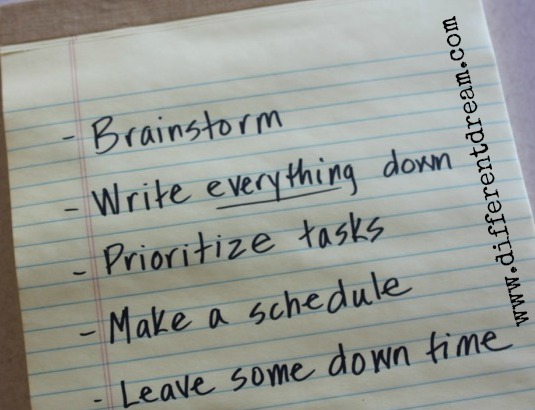 - Brainstorm
- Write everything down
- Prioritize tasks
- Make a schedule
- Leave some down time
www.differentdream.com